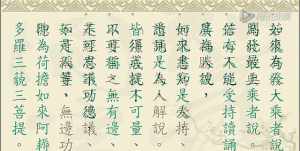 如來為發大乘者說
為發最上乘者說。
若有人能受持讀誦
廣為人說,
如來悉知是人,
悉見是人,
皆得成就不可量、
不可稱、無有邊、
不可思議功德。
如是人等,
則為荷擔如來阿耨
多羅三藐三菩提。